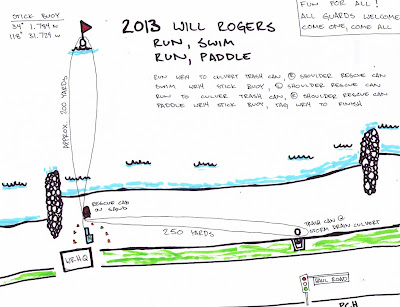 FUN FOR ALL!
ALL GUARDS WELCOME
COME ONE, COME ALL
STICK BUOY
34° 1.784 N
118° 31.729 W
2013 WILL ROGERS
RUN, SWIM
RUN, PADDLE
RUN WRTY TO CULVERT TRASH CAN, Ⓛ SHOULDER RESCUE CAN
SWIM WRTY STICK BUOY, Ⓛ SHOULDER RESCUE CAN
RUN TO CULVER TRASH CAN, SHOULDER RESCUE CAN
PADDLE WRTY STICK BUOY, TAG WRTY TO FINISH
APPROX. 200 YARDS
RESCUE CAN
IN SAND
250 YARDS
TRASH CAN @
STORM DRAIN CULVERT
WRHQ
RAIL ROAD
PCH